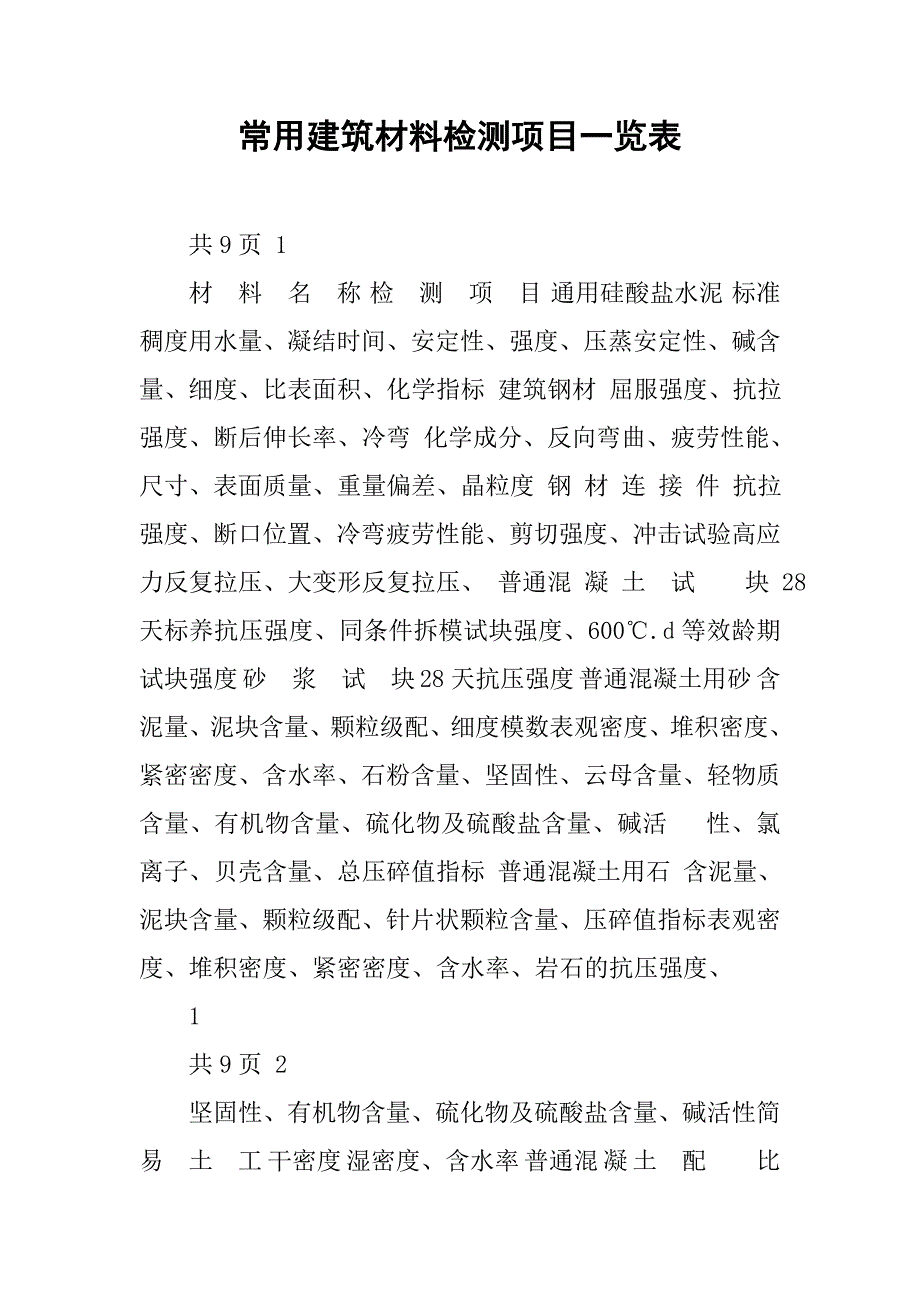 常用建筑材料检测项目一览表
共9页 1
材 料 名 称 检 测 项 目 通用硅酸盐水泥 标准
稠度用水量、凝结时间、安定性、强度、压蒸安定性、碱含
量、细度、比表面积、化学指标 建筑钢材 屈服强度、抗拉
强度、断后伸长率、冷弯 化学成分、反向弯曲、疲劳性能、
尺寸、表面质量、重量偏差、晶粒度 钢 材 连 接 件 抗拉
强度、断口位置、冷弯疲劳性能、剪切强度、冲击试验高应
力反复拉压、大变形反复拉压、 普通混 凝 土 试 块 28
天标养抗压强度、同条件拆模试块强度、600℃.d 等效龄期
试块强度 砂 浆 试 块 28 天抗压强度 普通混凝土用砂 含
泥量、泥块含量、颗粒级配、细度模数表观密度、堆积密度、
紧密密度、含水率、石粉含量、坚固性、云母含量、轻物质
含量、有机物含量、硫化物及硫酸盐含量、碱活 性、氯
离子、贝壳含量、总压碎值指标 普通混凝土用石 含泥量、
泥块含量、颗粒级配、针片状颗粒含量、压碎值指标表观密
度、堆积密度、紧密密度、含水率、岩石的抗压强度、
1
共9页 2
坚固性、有机物含量、硫化物及硫酸盐含量、碱活性简
易 土 工 干密度 湿密度、含水率 普通混 凝 土 配 比